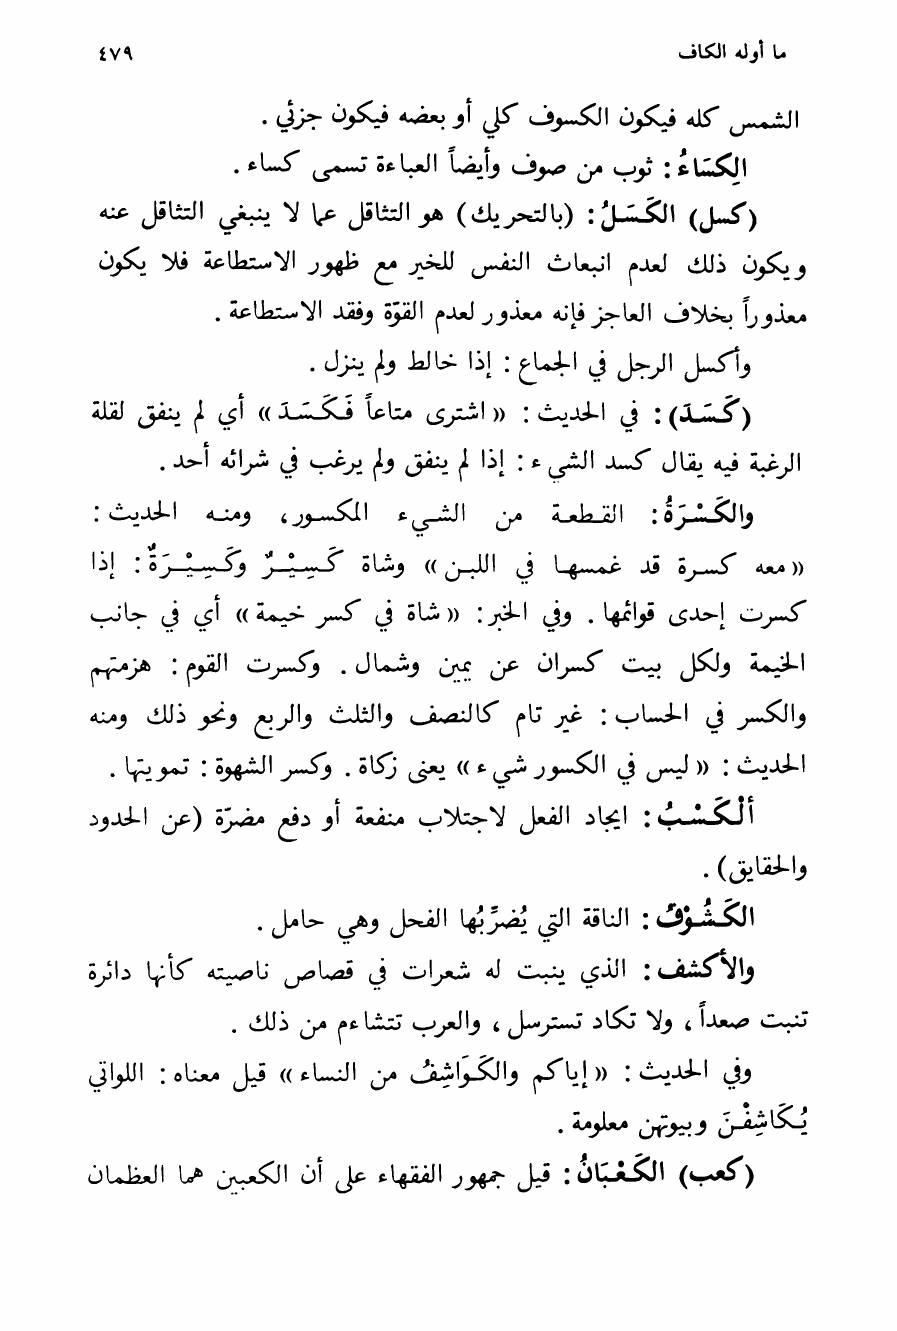 ما أوله الكاف ٤٧٩
الشمس كله فيكون الكسوف كلي أو بعضه فيكون جزئي .
الِكسَاءُ : ثوب من صوف وأيضاً العباءة تسمى كساء .
(كسل) الكَسَلُ : (بالتحريك) هو التثاقل عما لا ينبغي التثاقل عنه
ويكون ذلك لعدم انبعاث النفس للخير مع ظهور الاستطاعة فلا يكون
معذوراً بخلاف العاجز فإنه معذور لعدم القوّة وفقد الاستطاعة .
وأكسل الرجل في الجماع : إذا خالط ولم ينزل .
(كَسَدَ) : في الحديث : « اشترى متاعاً فَكَسَدَ » أي لم ينفق لقلة
الرغبة فيه يقال كسد الشيء : إذا لم ينفق ولم يرغب في شرائه أحد .
والكَسْرَةُ : القطعة من الشيء المكسور، ومنه الحديث :
« معه كسرة قد غمسها في اللبن » وشاة كَسِيْرٌ وكَسِيْرَةٌ : إذا
كسرت إحدى قوائمها . وفي الخبر : « شاة في كسر خيمة » أي في جانب
الخيمة ولكل بيت كسران عن يمين وشمال . وكسرت القوم : هزمتهم
والكسر في الحساب : غير تام كالنصف والثلث والربع ونحو ذلك ومنه
الحديث : « ليس في الكسور شيء » يعنى زكاة . وكسر الشهوة : تمويتها .
ألْكَسْبُ : ايجاد الفعل لاجتلاب منفعة أو دفع مضرّة (عن الحدود
والحقايق) .
الكَشُوْفُ : الناقة التي يُضرِّبُها الفحل وهي حامل .
والأكشف : الذي ينبت له شعرات في قصاص ناصيته كأنها دائرة
تنبت صعداً ، ولا تكاد تسترسل ، والعرب تتشاءم من ذلك .
وفي الحديث : « إياكم والكَوَاشِفُ من النساء » قيل معناه : اللواتي
يُكَاشِفْنَ وبيوتهن معلومة .
(كعب) الكَعْبَانُ : قيل جمهور الفقهاء على أن الكعبين هما العظمان